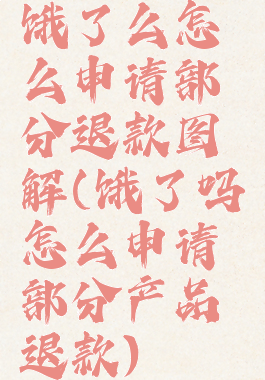 饿了么怎
么申请部
分退款图
解(饿了吗
怎么申请
部分产品
退款)